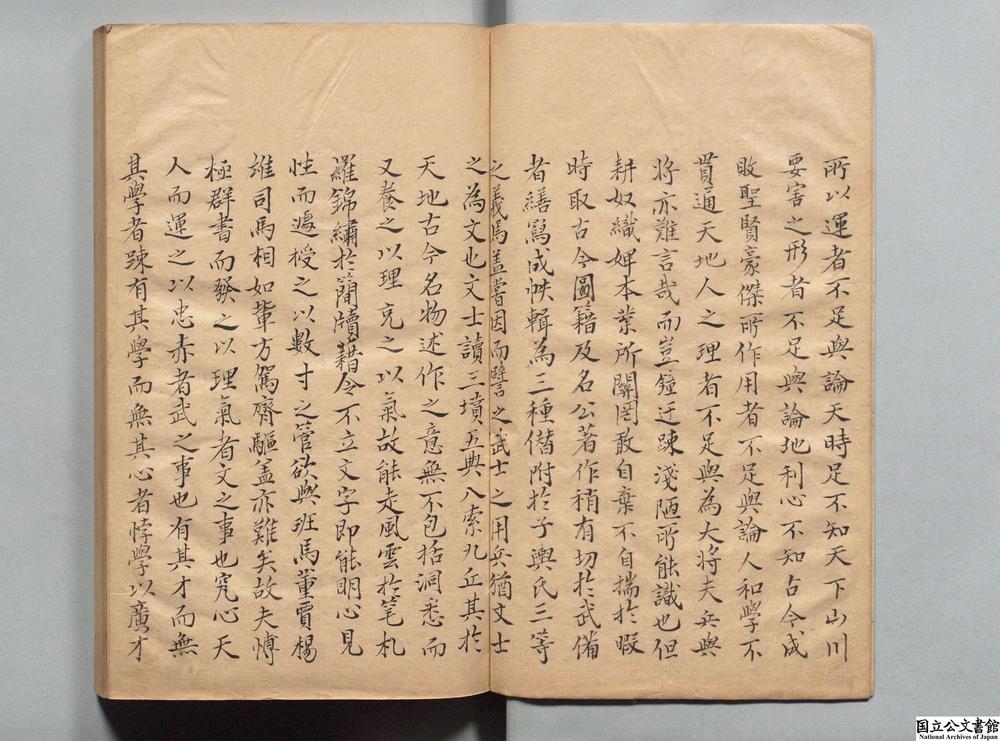 所以運者不足與論天時足不知天下山川
要害之形者不足與論地利心不知古今成
敗聖賢豪傑所作用者不足與論人和學不
貫通天地人之理者不足與為大將夫兵與
將亦難言哉而豈鐘迂踈淺陋所能識也但
耕奴織婢本業所關罔敢自棄不自揣於暇
時取古今圖籍及名公著作稍有切於武備
者繕寫成帙輯為三種僭附於子輿氏三等
之義焉盖嘗因而譬之武士之用兵猶文士
之為文也文士讀三墳五典八索九丘其於
天地古今名物述作之意無不包括洞悉而
又養之以理充之以氣故能走風雲於笔札
羅錦繡於簡牘藉令不立文字即能明心見
性而遽授之以數寸之管欲與班馬董賈楊
誰司馬相如輩方駕齊驅盖亦難矣故夫愽
極群書而發之以理氣者文之事也究心天
人而運之以忠赤者武之事也有其才而無
其學者踈有其學而無其心者悖學以廣才
国立公文書館
National Archives of Japan